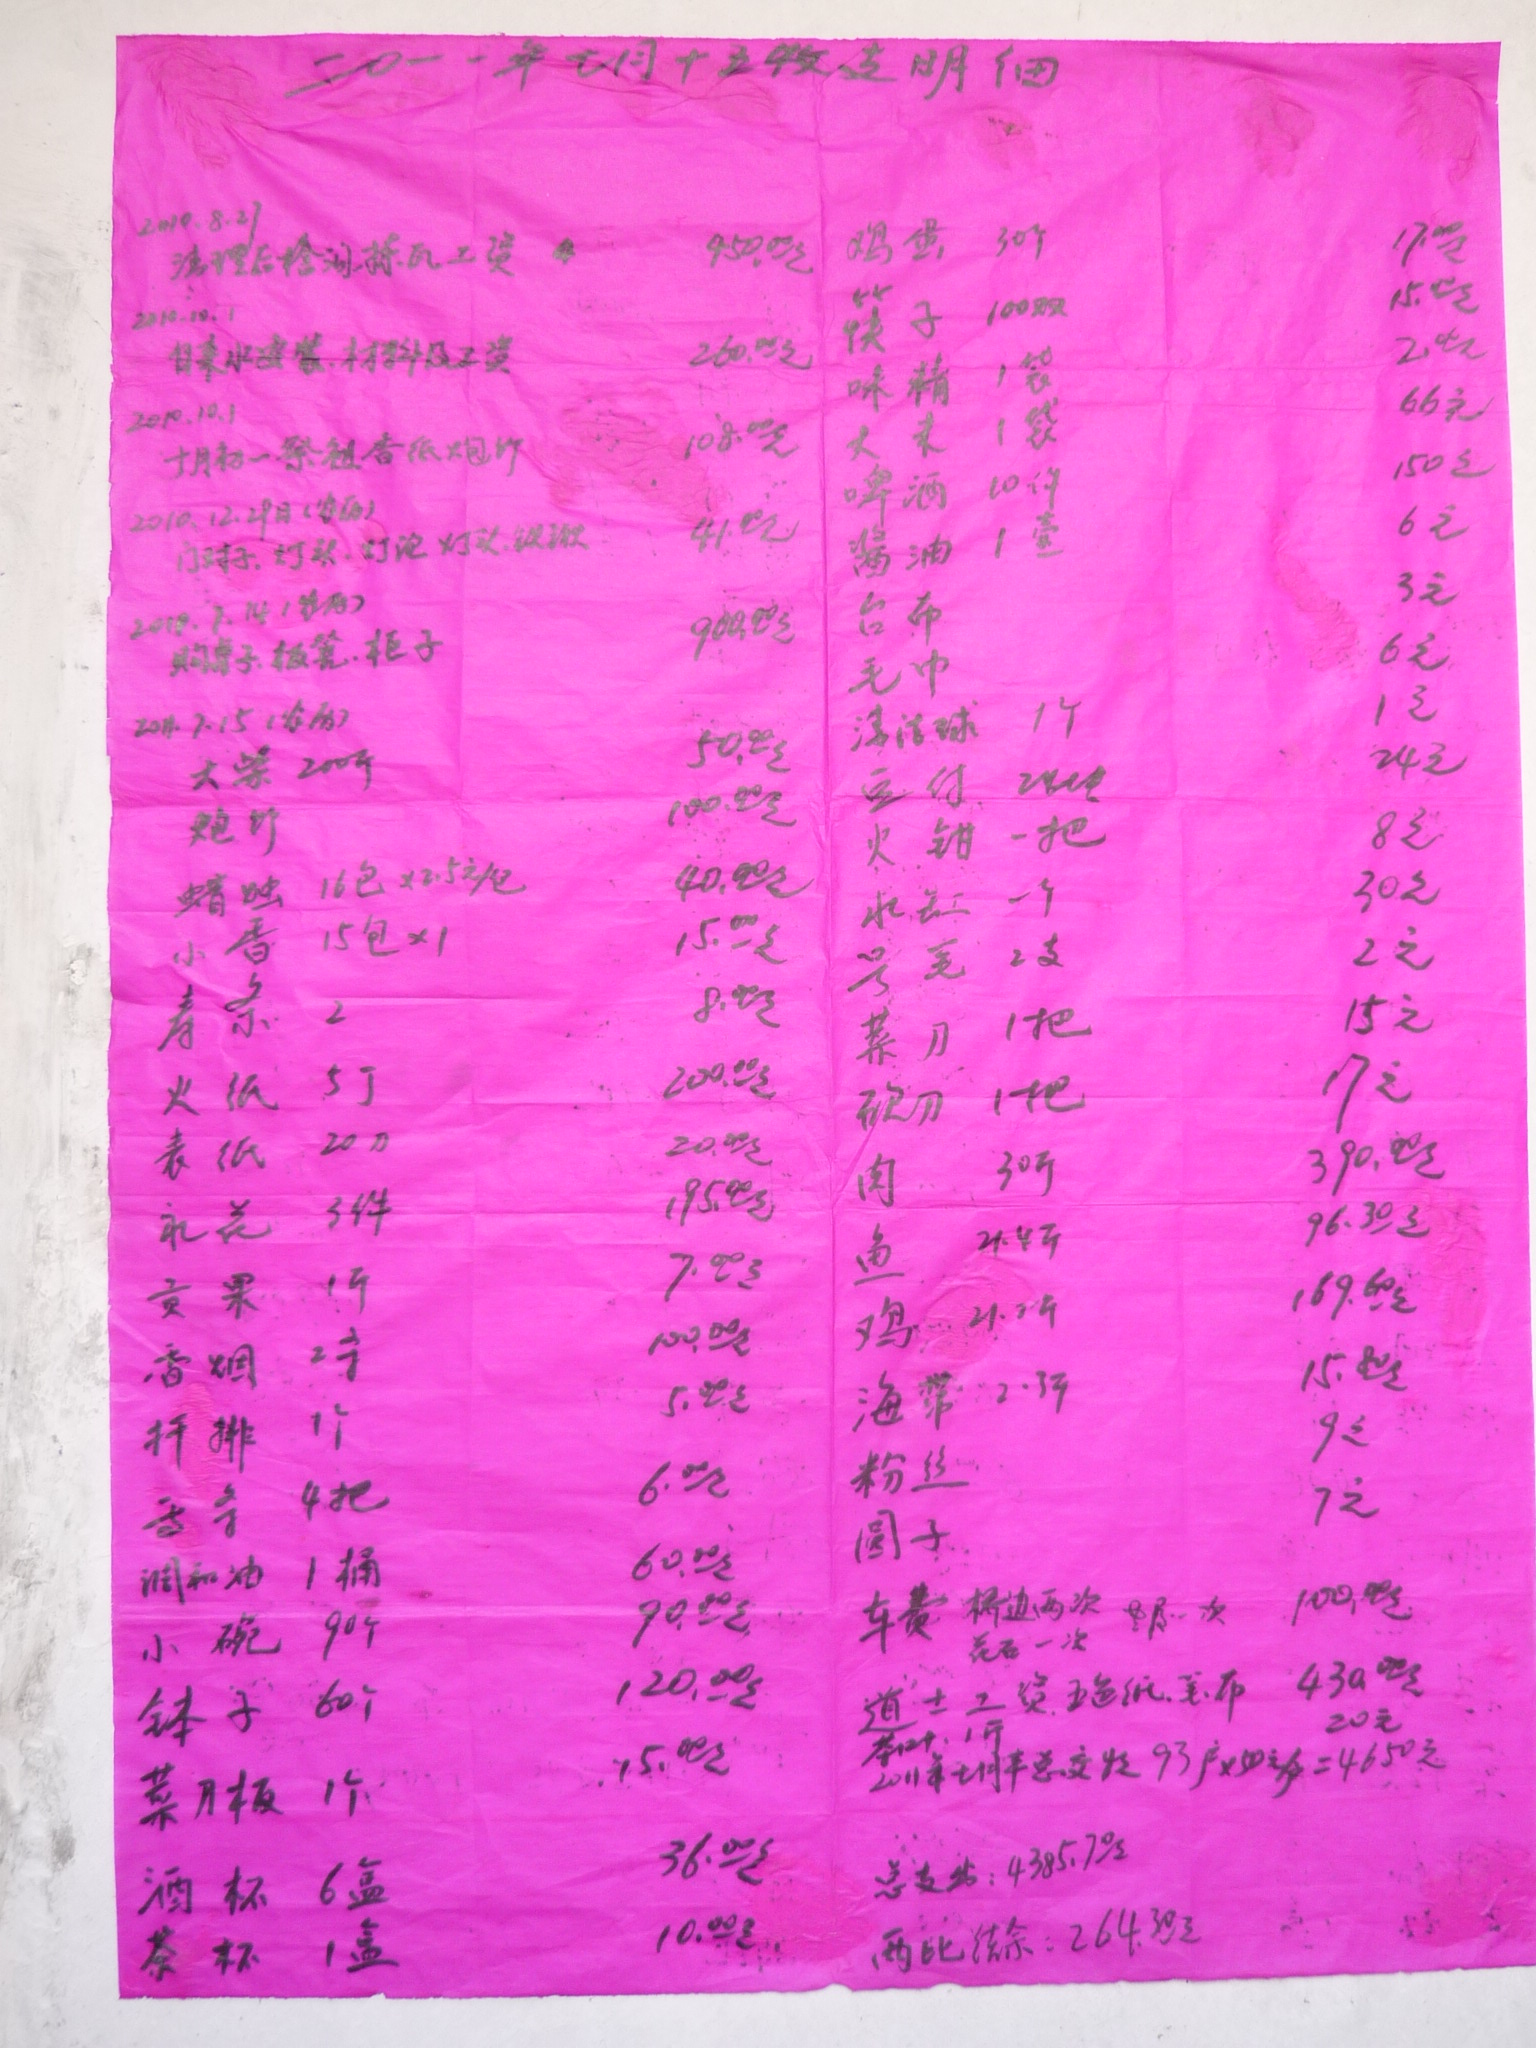 二〇一一年七月十五收支明细
2010.8.27
清理后檐沟.捡瓦工资 450.00元
2010.10.1
自来水安装.材料及工资 260.00元
2010.10.1
十月初一祭祖香纸炮竹 108.00元
2010.12.29日(农历)
门对子.灯泡 灯头 41.00元
7.14(农历)
购桌子.板凳.柜子 900.00元
2011.7.15(农历)
大柴 200斤 50.00元
炮竹 100.00元
蜡烛 16包×2.5元/包 40.00元
小香 15包×1 15.00元
寿条 2 8.00元
火纸 5丁 200.00元
表纸 20刀 20.00元
礼花 3件 195.00元
贡果 1斤 7.00元
香烟 2条 100.00元
排 1个 5.00元
4把 6.00元
调和油 1桶 60.00元
小碗 90个 90.00元
钵子 60个 120.00元
菜刀板 1个 15.00元
酒杯 6盒 36.00元
茶杯 1盒 10.00元
鸡蛋 30个 17.00元
筷子 100双 15.00元
味精 1袋
大米 1袋 66元
啤酒 10件 150元
酱油 1壶 6元
台布 3元
毛巾 6元
清洁球 1个 1元
豆付 24元
火钳 一把 8元
水缸 一个 30元
号笔 2支 2元
菜刀 1把 15元
砍刀 1把 17元
肉 30斤 390.00元
鱼 21.4斤 96.30元
鸡 169.60元
海带 2.3斤 15.80元
粉丝 9元
圆子 7元
车费 桥边两次 一次 100.00元
花石一次
道士工资.五色纸.笔.布 430.00元
茶叶.1斤 20元
2011年七月半总交收93户×50元/户=4650元
总支出:4385.70元
两比结余:264.30元